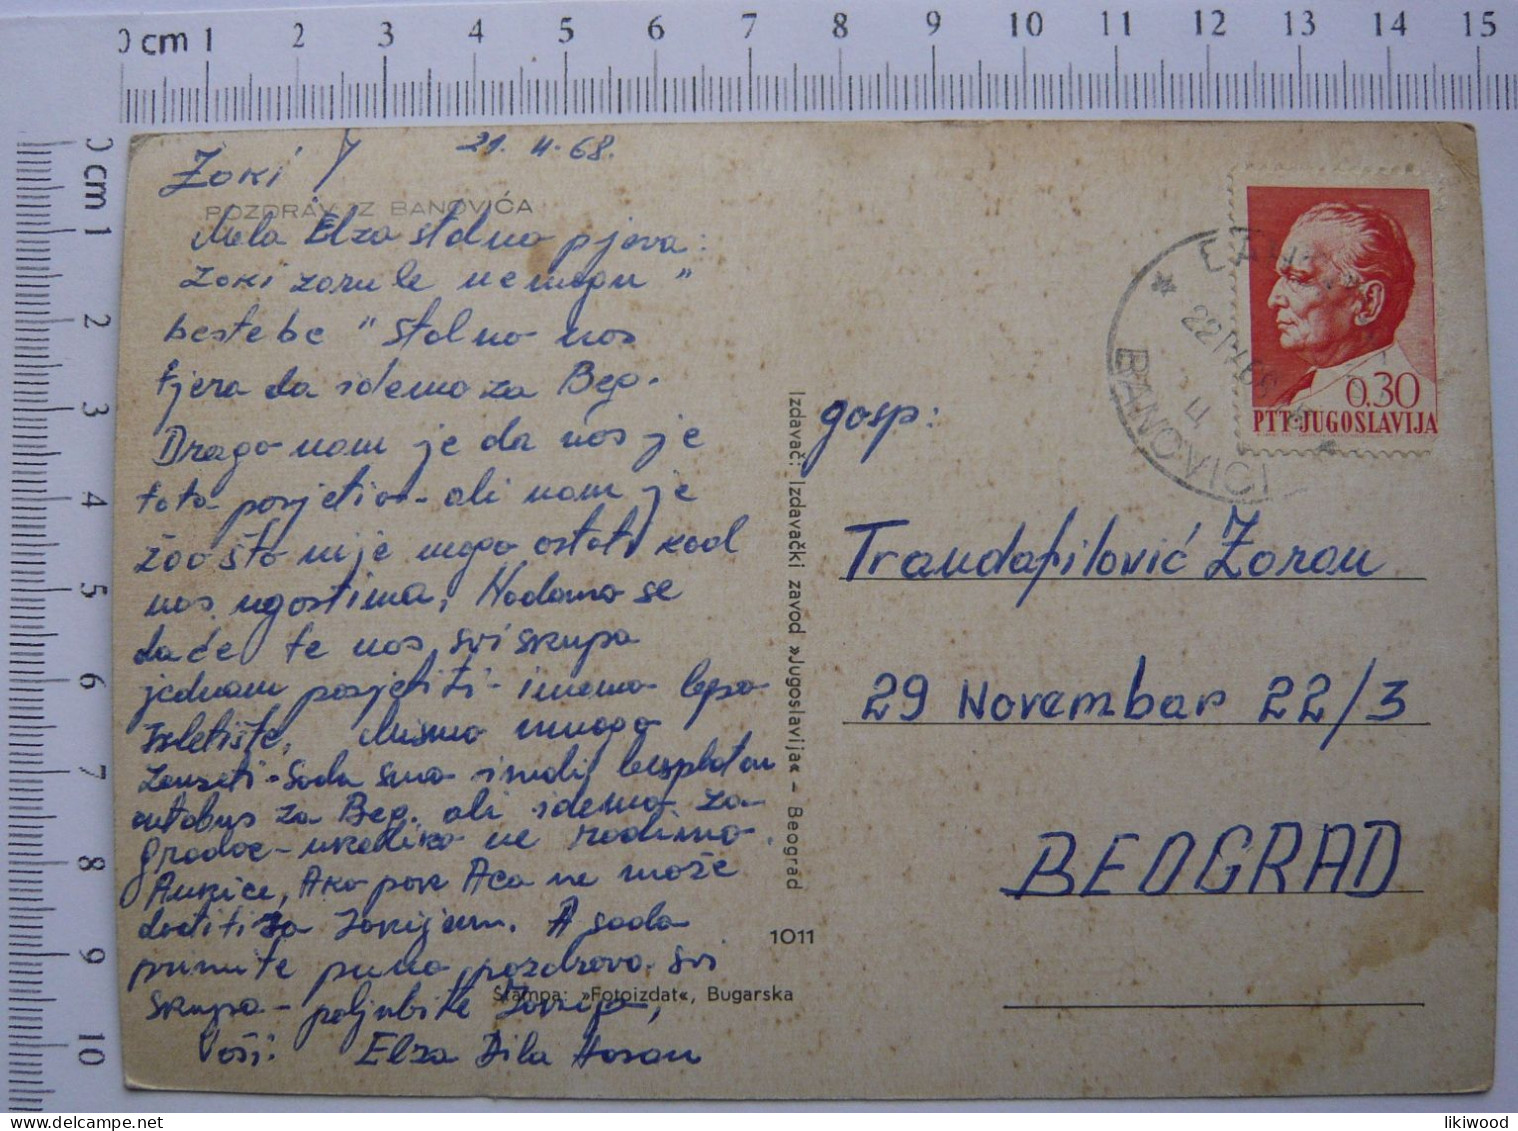 0 cm 1 2 3 4 5 6 7 8 9 10 11 12 13 14 15
0 cm 1 2 3 4 5 6 7 8 9 10
21. 4. 68.
Zoki
POZDRAV IZ BANOVIĆA
Mala Elza stalno pjeva:
Zoki nemogu "
bestebe " stalno nas
tjera da idemo za Beg.
Drago nam je da nas je
tata posjetio - ali nam je
žao što nije mogo ostati kod
nas ugostima, Nadamo se
da će te nas svi skupa
jednom posjetiti - imamo lepo
Izletište, Nismo mnogo
Zauzeti - Sada smo imali besplatan
autobus za Beg. ali idemo za
Gradac - ukoliko ne radimo.
Ankice, Ako pok Aca ne može
doći ti za Zokijem. A sada
primite puno pozdrava svi
skupa - poljubite Zokija,
Štampa: »Fotoizdat«, Bugarska
Vaši: Elza Dila Hasan
Izdavač: Izdavački zavod »Jugoslavija« - Beograd
1011
0.30
PTT JUGOSLAVIJA
BANOVIĆI
gosp:
Trandafilović Zoran
29 Novembar 22/3
BEOGRAD
likiwood